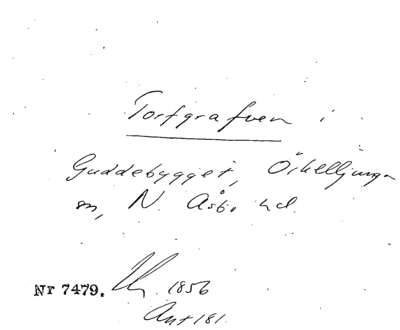 Torfgrafven i
Guddebygget, Örkelljunga
sn, N. Åsbo hd.
Nr 7479. 1856
Ant 181.